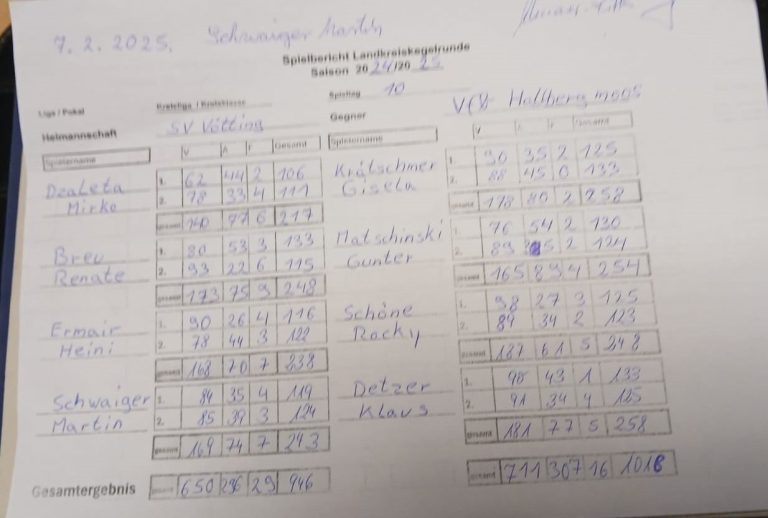 7. 2. 2025. Schwaiger Martin
Spielbericht Landkreiskegelrunde
Saison 20 24/20 25
Liga / Pokal Kreisliga / Kreisklasse Spieltag 10
Heimmannschaft SV Vötting Gegner Hallbergmoos
Spielername V A F Gesamt Spielername V A F Gesamt
Dzaleta 1. 62 44 2 106 Krätschmer 1. 90 35 2 125
Mirko 2. 78 33 4 111 Gisela 2. 88 45 0 133
gesamt 140 77 6 217 gesamt 178 80 2 258
Breu 1. 80 53 3 133 Matschinski 1. 76 54 2 130
Renate 2. 93 22 6 115 Gunter 2. 89 35 2 124
gesamt 173 75 9 248 gesamt 165 89 4 254
Ermair 1. 90 26 4 116 Schöne 1. 98 27 3 125
Heini 2. 78 44 3 122 Rocky 2. 89 34 2 123
gesamt 168 70 7 238 gesamt 187 61 5 248
Schwaiger 1. 84 35 4 119 Detzer 1. 90 43 1 133
Martin 2. 85 39 3 124 Klaus 2. 91 34 4 125
gesamt 169 74 7 243 gesamt 181 77 5 258
Gesamtergebnis gesamt 650 296 29 946 gesamt 711 307 16 1018